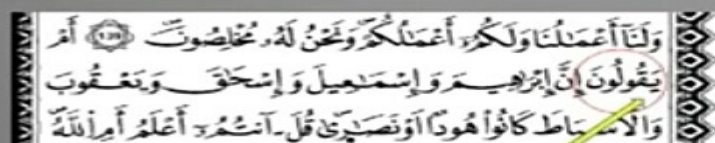 وَلَنَآ أَعْمَٰلُنَا وَلَكُمُۥٓ أَعْمَٰلُكُمْ وَنَحْنُ لَهُۥ مُخْلِصُونَ ۝ أَمْ
يَقُولُونَ إِنَّ إِبْرَٰهِيمَ وَإِسْمَٰعِيلَ وَإِسْحَٰقَ وَيَعْقُوبَ
وَالْأَسْبَاطَ كَانُوا۟ هُودًا أَوْ نَصَٰرَىٰ قُلَ ـآنتُمُۥٓ أَعْلَمُ أَمِ اِللَّهُ